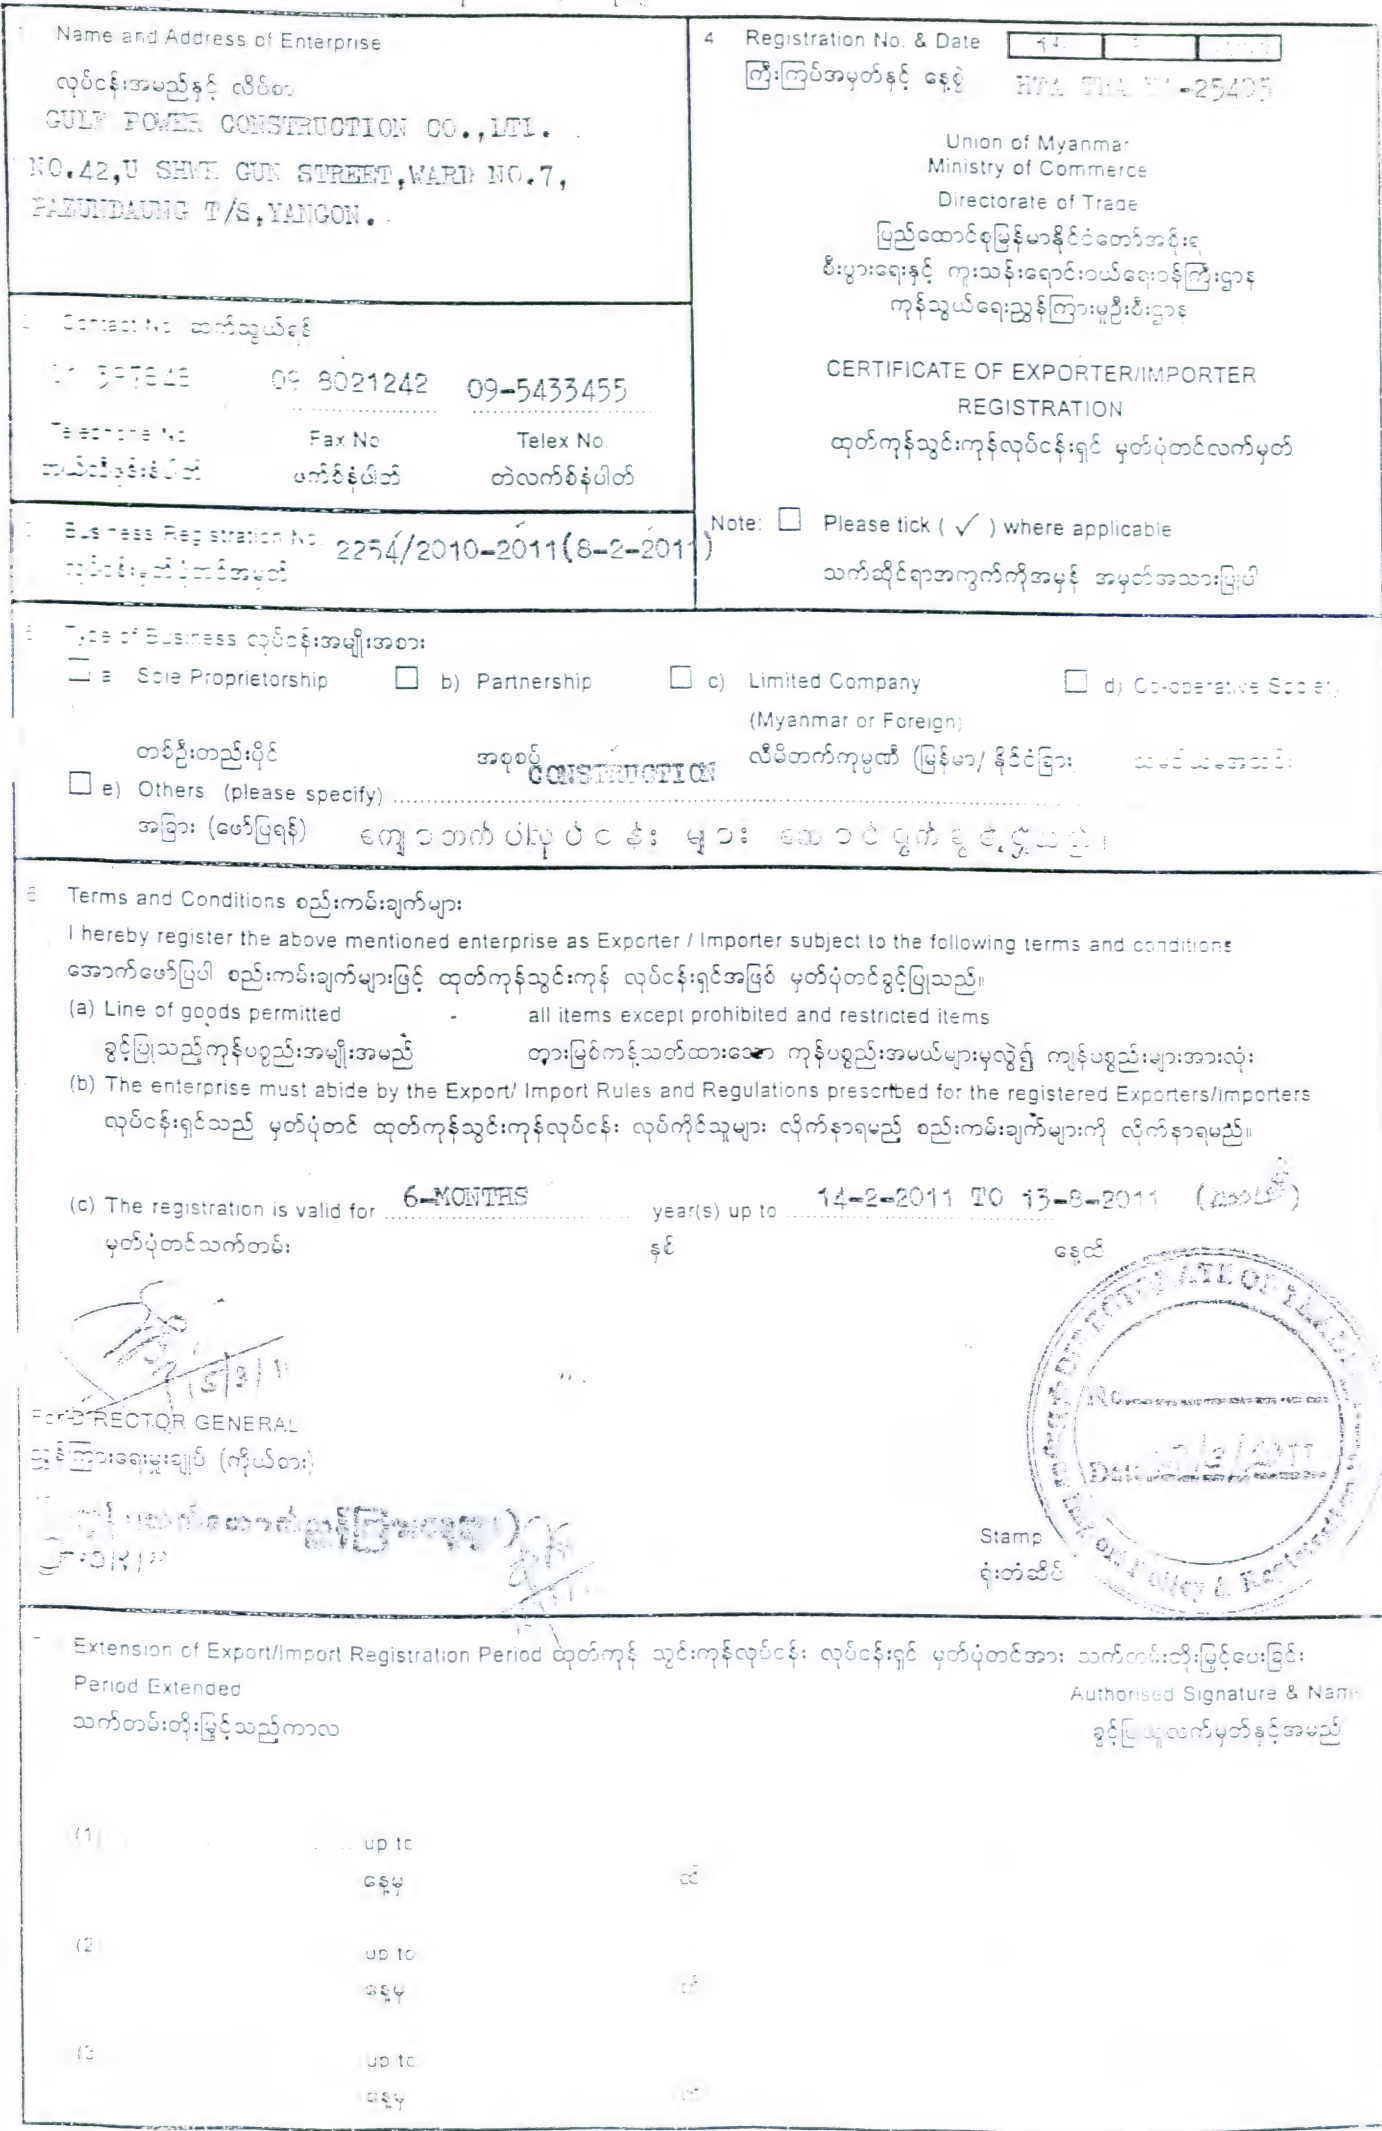 Name and Address of Enterprise
လုပ်ငန်းအမည်နှင့် လိပ်စာ
GULF POWER CONSTRUCTION CO.,LTD.
NO.42,U SHWE GUN STREET,WARD NO.7,
PAZUNDAUNG T/S,YANGON.
Contact No ဆက်သွယ်ရန်
09 8021242 09-5433455
Telephone No Fax No Telex No.
တယ်လီဖုန်းနံပါတ် ဖက်စ်နံပါတ် တဲလက်စ်နံပါတ်
Business Registration No. 2254/2010-2011(8-2-2011)
လုပ်ငန်းမှတ်ပုံတင်အမှတ်
4 Registration No. & Date
ကြီးကြပ်အမှတ်နှင့် နေ့စွဲ
Union of Myanmar
Ministry of Commerce
Directorate of Trade
ပြည်ထောင်စုမြန်မာနိုင်ငံတော်အစိုးရ
စီးပွားရေးနှင့် ကူးသန်းရောင်းဝယ်ရေးဝန်ကြီးဌာန
ကုန်သွယ်ရေးညွှန်ကြားမှုဦးစီးဌာန
CERTIFICATE OF EXPORTER/IMPORTER
REGISTRATION
ထုတ်ကုန်သွင်းကုန်လုပ်ငန်းရှင် မှတ်ပုံတင်လက်မှတ်
Note: ☐ Please tick ( ✓ ) where applicable
သက်ဆိုင်ရာအကွက်ကိုအမှန် အမှတ်အသားပြုပါ
Type of Business လုပ်ငန်းအမျိုးအစား
☐ a Sole Proprietorship ☐ b) Partnership ☐ c) Limited Company ☐ d) Co-operative Society
(Myanmar or Foreign)
တစ်ဦးတည်းပိုင် အစုစပ် လီမိတက်ကုမ္ပဏီ (မြန်မာ/ နိုင်ငံခြား သမဝါယမအသင်း
CONSTRUCTION
☐ e) Others (please specify)
အခြား (ဖော်ပြရန်)
6 Terms and Conditions စည်းကမ်းချက်များ
I hereby register the above mentioned enterprise as Exporter / Importer subject to the following terms and conditions
အောက်ဖော်ပြပါ စည်းကမ်းချက်များဖြင့် ထုတ်ကုန်သွင်းကုန် လုပ်ငန်းရှင်အဖြစ် မှတ်ပုံတင်ခွင့်ပြုသည်။
(a) Line of goods permitted - all items except prohibited and restricted items
ခွင့်ပြုသည့်ကုန်ပစ္စည်းအမျိုးအမည် တားမြစ်ကန့်သတ်ထားသော ကုန်ပစ္စည်းအမယ်များမှလွဲ၍ ကျန်ပစ္စည်းများအားလုံး
(b) The enterprise must abide by the Export/ Import Rules and Regulations prescribed for the registered Exporters/Importers
လုပ်ငန်းရှင်သည် မှတ်ပုံတင် ထုတ်ကုန်သွင်းကုန်လုပ်ငန်း လုပ်ကိုင်သူများ လိုက်နာရမည့် စည်းကမ်းချက်များကို လိုက်နာရမည်။
(c) The registration is valid for 6-MONTHS year(s) up to 14-2-2011 TO 13-8-2011
မှတ်ပုံတင်သက်တမ်း နှစ် နေ့ထိ
For DIRECTOR GENERAL
ညွှန်ကြားရေးမှူးချုပ် (ကိုယ်စား)
No
Date
Stamp
ရုံးတံဆိပ်
Extension of Export/Import Registration Period ထုတ်ကုန် သွင်းကုန်လုပ်ငန်း လုပ်ငန်းရှင် မှတ်ပုံတင်အား သက်တမ်းတိုးမြှင့်ပေးခြင်း
Period Extended Authorised Signature & Name
သက်တမ်းတိုးမြှင့်သည့်ကာလ ခွင့်ပြုသူလက်မှတ်နှင့်အမည်
(1) up to
နေ့မှ ထိ
(2) up to
နေ့မှ ထိ
(3 up to
နေ့မှ ထိ